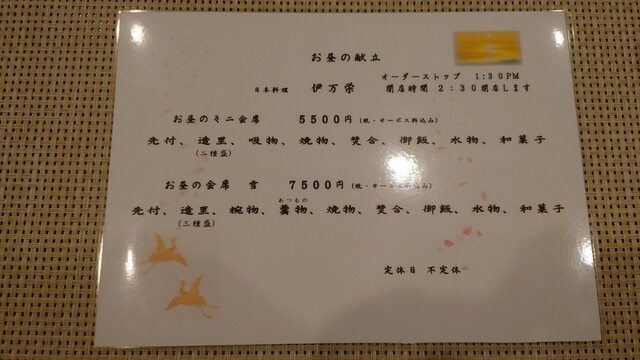 お昼の献立
オーダーストップ 1:30PM
日本料理 伊万栄 閉店時間 2:30閉店します
お昼のミニ会席 5500円(税・サービス料込み)
先付、造里、吸物、焼物、焚合、御飯、水物、和菓子
(二種盛)
お昼の会席 雪 7500円(税・サービス料込み)
あつもの
先付、造里、椀物、羹物、焼物、焚合、御飯、水物、和菓子
(三種盛)
定休日 不定休